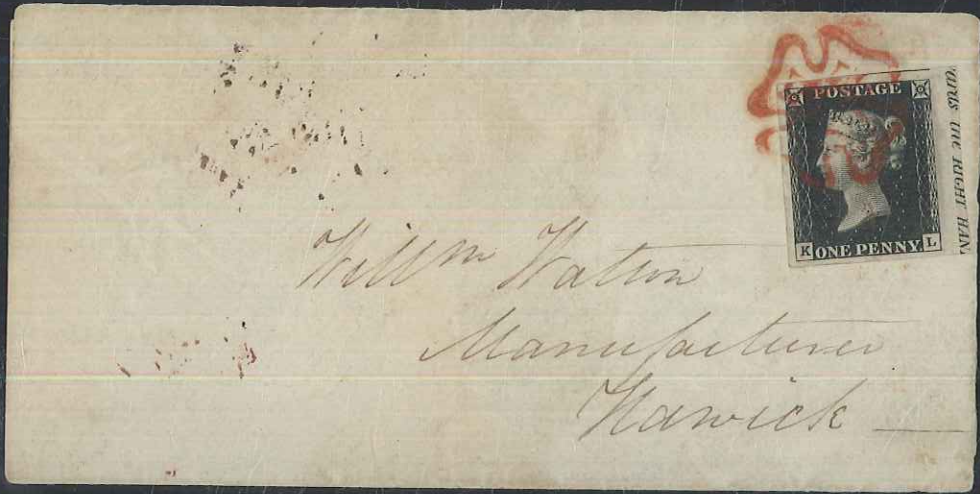 POSTAGE
K ONE PENNY. L
ards the RIGHT HAN
Willm Watson
Manufacturer
Hawick